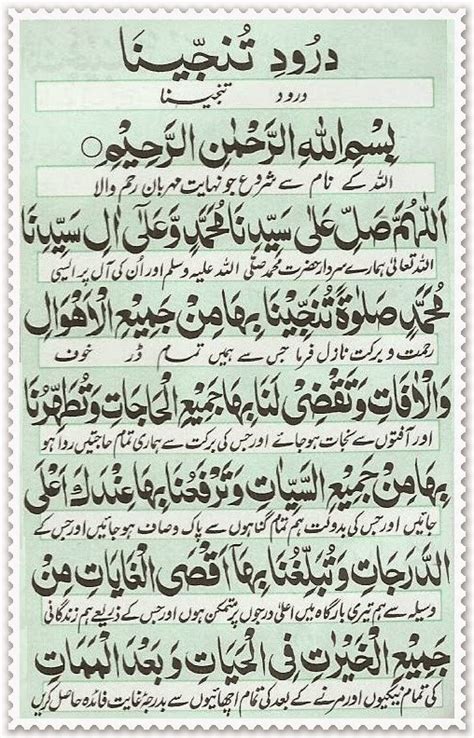 درُودِ تُنجّینا
درود تنجینا
بِسْمِ اللهِ الرَّحْمٰنِ الرَّحِیْمِ ○
اللہ کے نام سے شروع جو نہایت مہربان رحم والا
اَللّٰهُمَّ صَلِّ عَلٰى سَيِّدِنَا مُحَمَّدٍ وَّعَلٰٓى اٰلِ سَيِّدِنَا
اللہ تعالیٰ ہمارے سردار حضرت محمد صلی اللہ علیہ وسلم اور اُن کی آل پر ایسی
مُحَمَّدٍ صَلٰوةً تُنَجِّيْنَا بِهَا مِنْ جَمِيْعِ الْاَهْوَالِ
رحمت و برکت نازل فرما جس سے ہمیں تمام ڈر خوف
وَالْاٰفَاتِ وَتَقْضِىْ لَنَا بِهَا جَمِيْعَ الْحَاجَاتِ وَتُطَهِّرُنَا
اور آفتوں سے نجات ہو جائے اور جس کی برکت سے ہماری تمام حاجتیں روا ہو
بِهَا مِنْ جَمِيْعِ السَّيِّاٰتِ وَتَرْفَعُنَا بِهَا عِنْدَكَ اَعْلَى
جائیں اور جس کی بدولت ہم تمام گناہوں سے پاک و صاف ہو جائیں اور جس کے
الدَّرَجَاتِ وَتُبَلِّغُنَا بِهَآ اَقْصَى الْغَايَاتِ مِنْ
وسیلے سے ہم تیری بارگاہ میں اعلیٰ درجوں پر متمکن ہوں اور جس کے ذریعے ہم زندگانی
جَمِيْعِ الْخَيْرٰتِ فِى الْحَيَاتِ وَبَعْدَ الْمَمَاتِ
کی تمام نیکیوں اور مرنے کے بعد کی تمام اچھائیوں سے بدرجۂ غایت فائدہ حاصل کریں